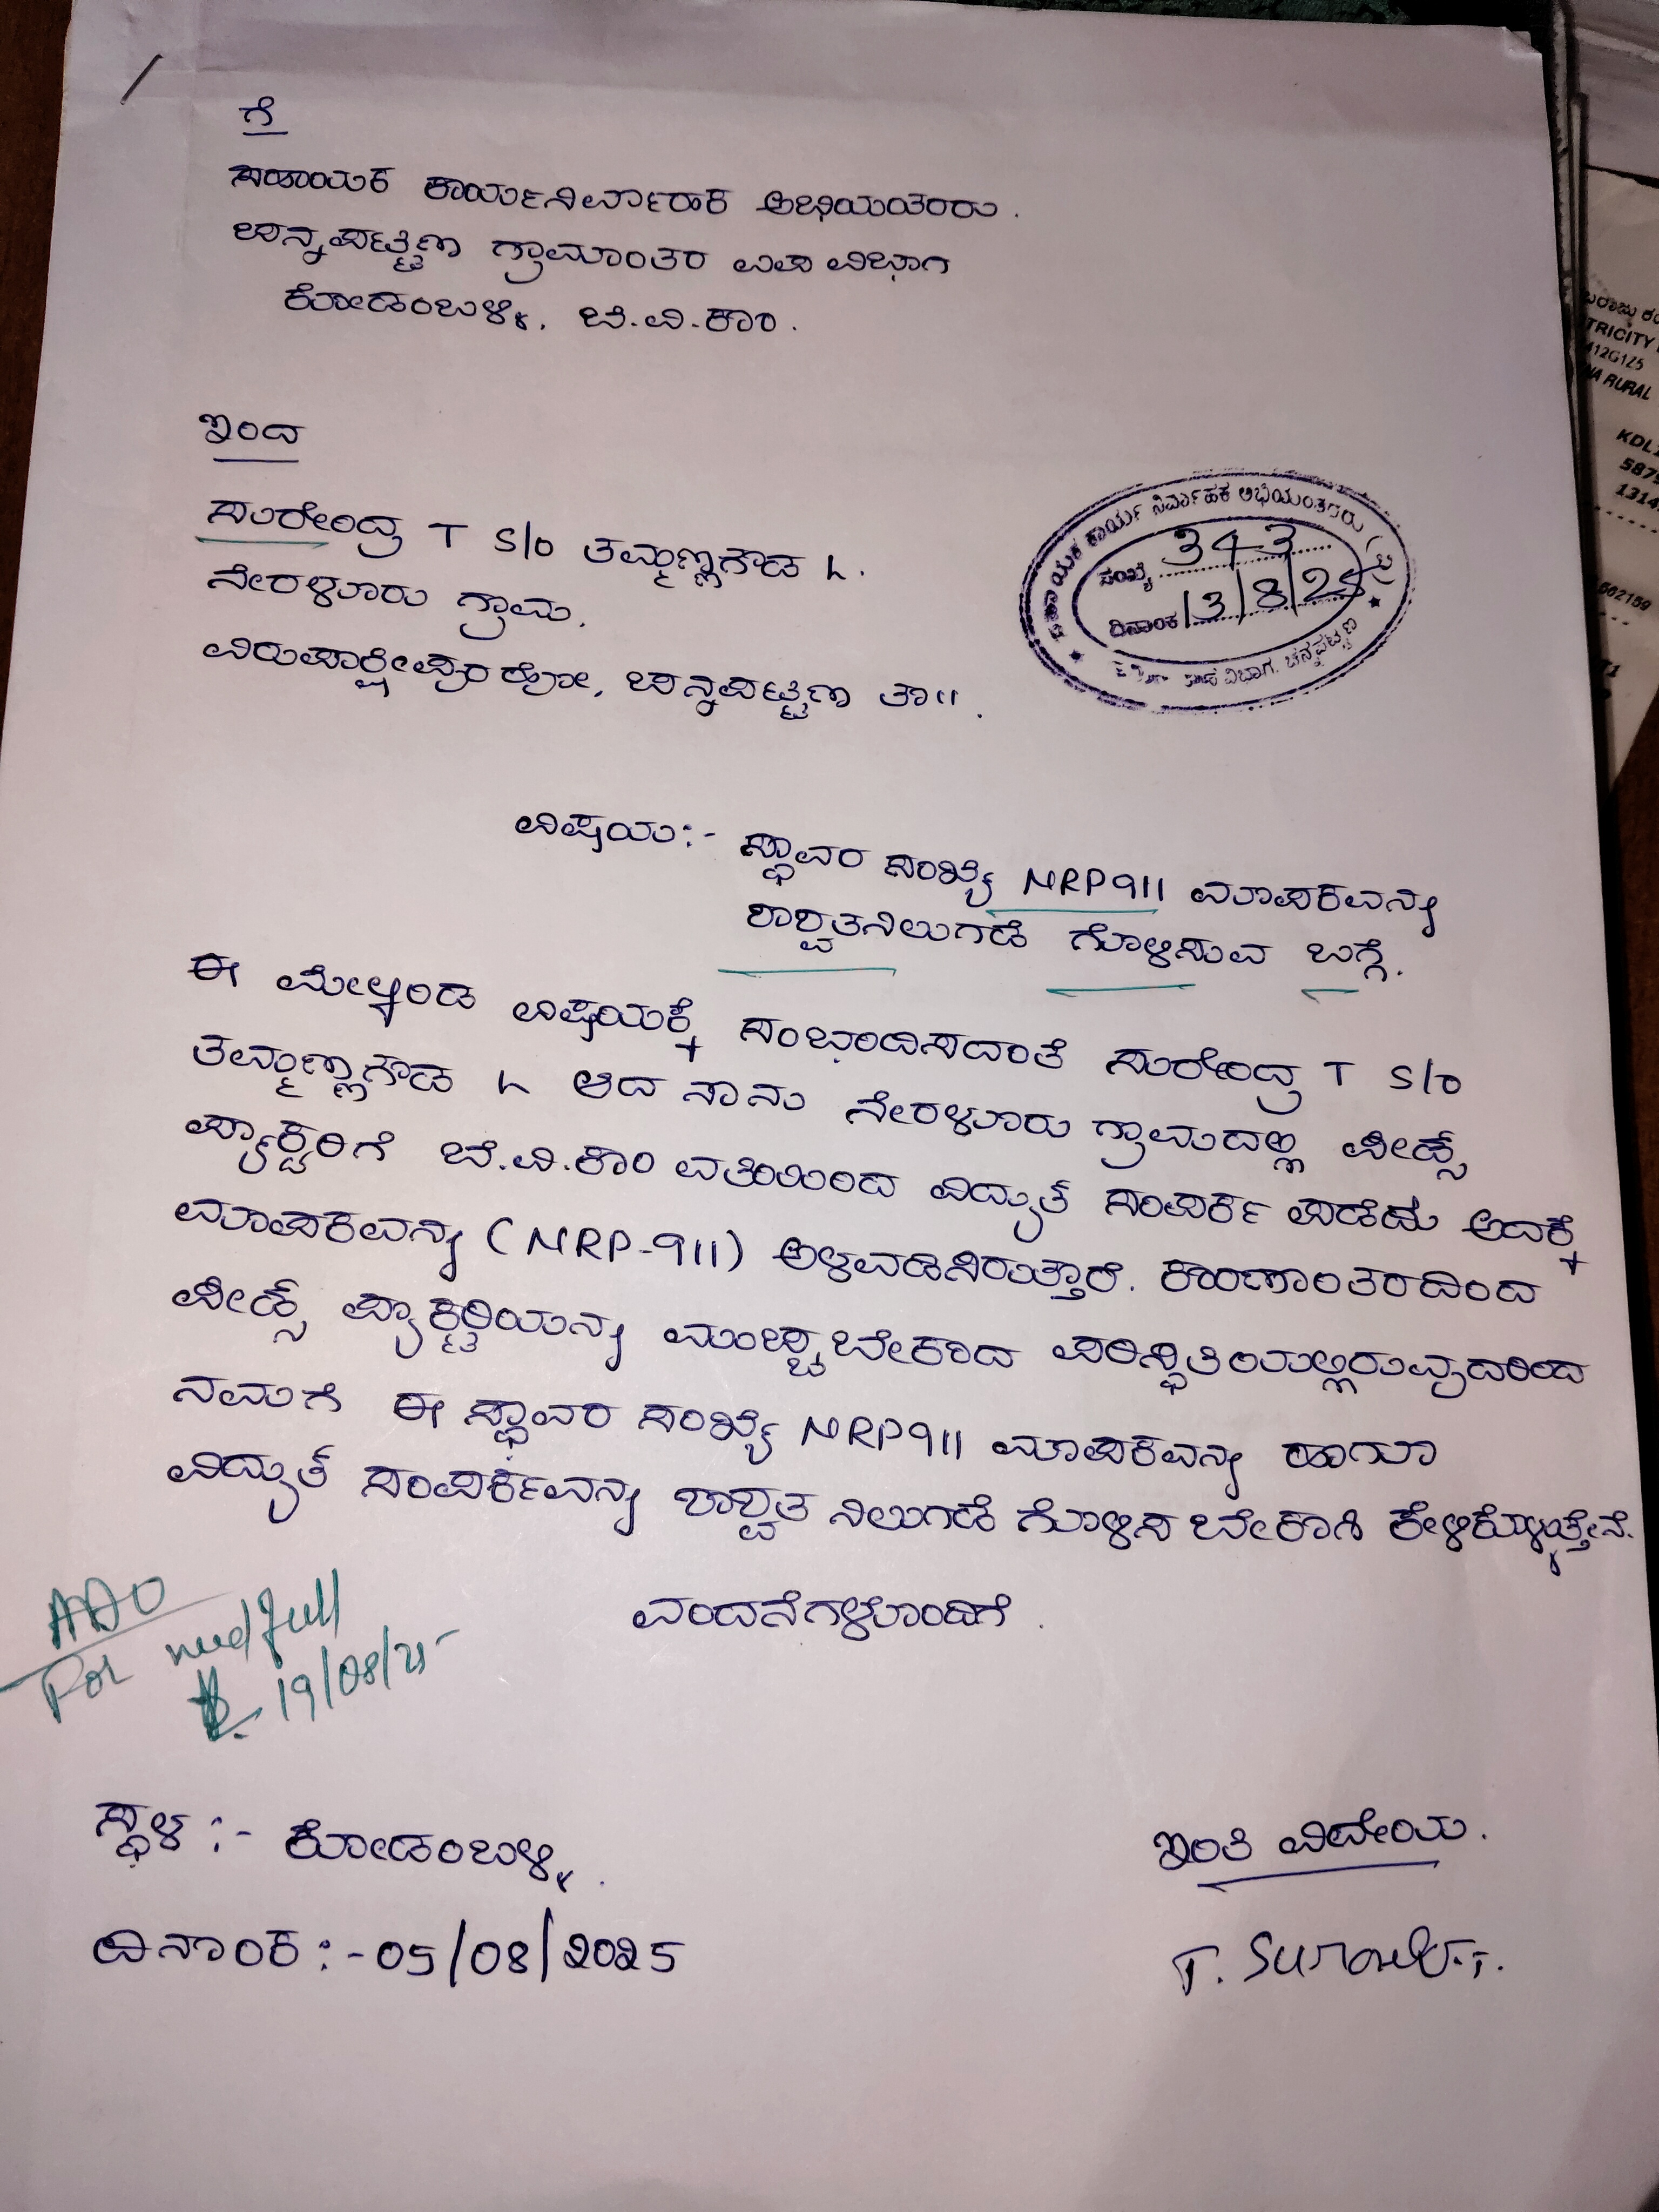 ಗೆ
ಸಹಾಯಕ ಕಾರ್ಯನಿರ್ವಾಹಕ ಅಭಿಯಂತರರು.
ಚನ್ನಪಟ್ಟಣ ಗ್ರಾಮಾಂತರ ಉಪ ವಿಭಾಗ
ಕೋಡಂಬಳ್ಳಿ, ಬೆ.ವಿ.ಕಂ.
ಇಂದ
ಸುರೇಂದ್ರ T S/o ತಮ್ಮಣ್ಣಗೌಡ L.
ನೇರಳೂರು ಗ್ರಾಮ.
ವಿರುಪಾಕ್ಷೀಪುರ ಹೋ, ಚನ್ನಪಟ್ಟಣ ತಾ॥.
ಸಹಾಯಕ ಕಾರ್ಯ ನಿರ್ವಾಹಕ ಅಭಿಯಂತರರು
ಸಂಖ್ಯೆ 343
ದಿನಾಂಕ 13/8/25
ಉಪ ವಿಭಾಗ. ಚನ್ನಪಟ್ಟಣ
ವಿಷಯ:- ಸ್ಥಾವರ ಸಂಖ್ಯೆ NRP911 ಮಾಪಕವನ್ನು
ಶಾಶ್ವತನಿಲುಗಡೆ ಗೊಳಿಸುವ ಬಗ್ಗೆ.
ಈ ಮೇಲ್ಕಂಡ ವಿಷಯಕ್ಕೆ ಸಂಬಂದಿಸಿದಂತೆ ಸುರೇಂದ್ರ T S/o
ತಮ್ಮಣ್ಣಾಗೌಡ L ಆದ ನಾನು ನೇರಳೂರು ಗ್ರಾಮದಲ್ಲಿ ಫೀಡ್ಸ್
ಪ್ಯಾಕ್ಟರಿಗೆ ಬೆ.ವಿ.ಕಂ ವತಿಯಿಂದ ವಿದ್ಯುತ್ ಸಂಪರ್ಕ ಪಡೆದು ಅದಕ್ಕೆ
ಮಾಪಕವನ್ನು (NRP-911) ಅಳವಡಿಸಿರುತ್ತಾರೆ. ಕಾರಣಾಂತರದಿಂದ
ಫೀಡ್ಸ್ ಪ್ಯಾಕ್ಟರಿಯನ್ನು ಮುಚ್ಚಬೇಕಾದ ಪರಿಸ್ಥಿತಿಯಲ್ಲಿರುವುದರಿಂದ
ನಮಗೆ ಈ ಸ್ಥಾವರ ಸಂಖ್ಯೆ NRP911 ಮಾಪಕವನ್ನು ಹಾಗೂ
ವಿದ್ಯುತ್ ಸಂಪರ್ಕವನ್ನು ಶಾಶ್ವತ ನಿಲುಗಡೆ ಗೊಳಿಸ ಬೇಕಾಗಿ ಕೇಳಿಕೊಳ್ಳುತ್ತೇನೆ.
ವಂದನೆಗಳೊಂದಿಗೆ.
AAO
For needfull
19/08/25
ಸ್ಥಳ:- ಕೋಡಂಬಳ್ಳಿ.
ದಿನಾಂಕ:-05/08/2025
ಇಂತಿ ವಿದೇಯ.
ರಾಜು
TRICITY
412G1Z5
NA RURAL
KDL
587
1314
562159